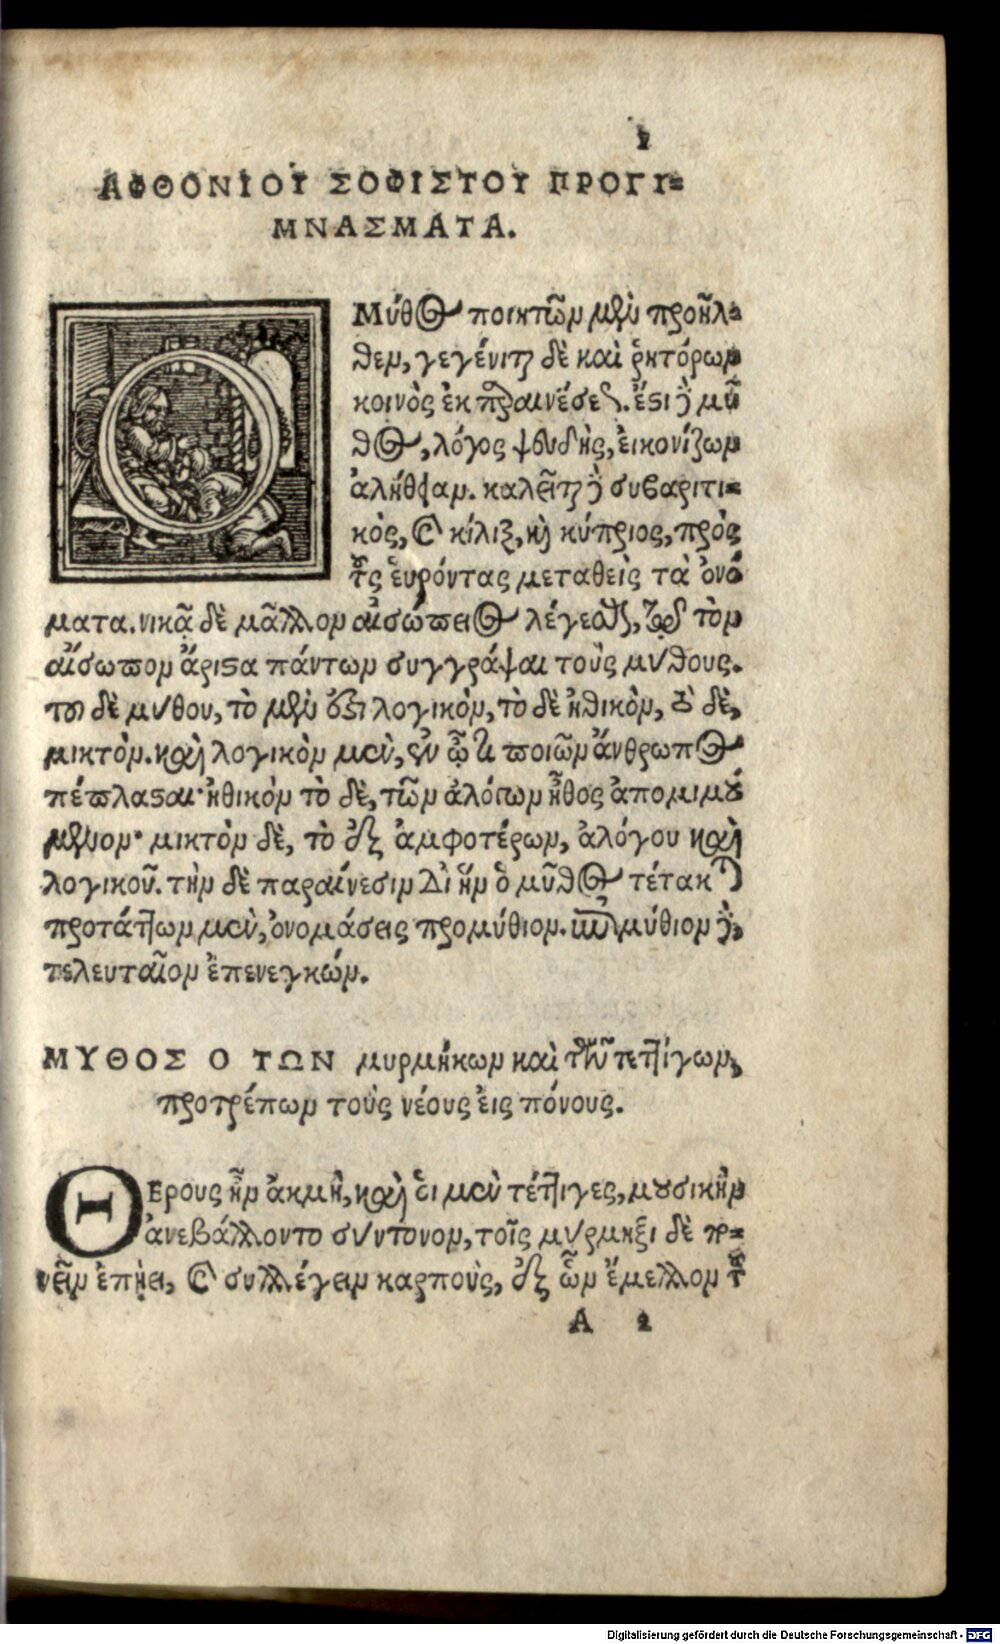 ΑΦΘΟΝΙΟΥ ΣΟΦΙΣΤΟΥ ΠΡΟΓΥ=
ΜΝΑΣΜΑΤΑ.
Ο Μύθος ποιητῶν μὲν προῆλ=
θεν, γεγένηται δὲ καὶ ῥητόρων
κοινὸς ἐκ παραινέσεως. ἔστι δὲ μῦ
θος, λόγος ψευδὴς, εἰκονίζων
ἀλήθειαν. καλεῖται δὲ συβαριτι=
κὸς, καὶ κίλιξ, καὶ κύπριος, πρὸς
τοὺς εὑρόντας μεταθεὶς τὰ ὀνό
ματα. νικᾷ δὲ μᾶλλον αἰσώπειος λέγεσθαι, τῷ τὸν
αἴσωπον ἄριστα πάντων συγγράψαι τοὺς μύθους.
τοῦ δὲ μύθου, τὸ μέν ἐστι λογικὸν, τὸ δὲ ἠθικὸν, τὸ δὲ,
μικτὸν. καὶ λογικὸν μὲν, ἐν ᾧ τι ποιῶν ἄνθρωπος
πέπλασται· ἠθικὸν τὸ δὲ, τῶν ἀλόγων ἦθος ἀπομιμού
μενον· μικτὸν δὲ, τὸ ἐξ ἀμφοτέρων, ἀλόγου καὶ
λογικοῦ. τὴν δὲ παραίνεσιν δι' ἣν ὁ μῦθος τέτακται
προτάττων μὲν, ὀνομάσεις προμύθιον. ἐπιμύθιον δὲ,
τελευταῖον ἐπενεγκών.
ΜΥΘΟΣ Ο ΤΩΝ μυρμήκων καὶ τῶν τεττίγων,
προτρέπων τοὺς νέους εἰς πόνους.
ΘΕΡΟΥΣ ἦν ἀκμὴ, καὶ οἱ μὲν τέττιγες, μουσικὴν
ἀνεβάλλοντο σύντονον, τοῖς μύρμηξι δὲ πο=
νεῖν ἐπῄει, καὶ συλλέγειν καρποὺς, ἐξ ὧν ἔμελλον τοῦ
A 2
Digitalisierung gefördert durch die Deutsche Forschungsgemeinschaft - DFG